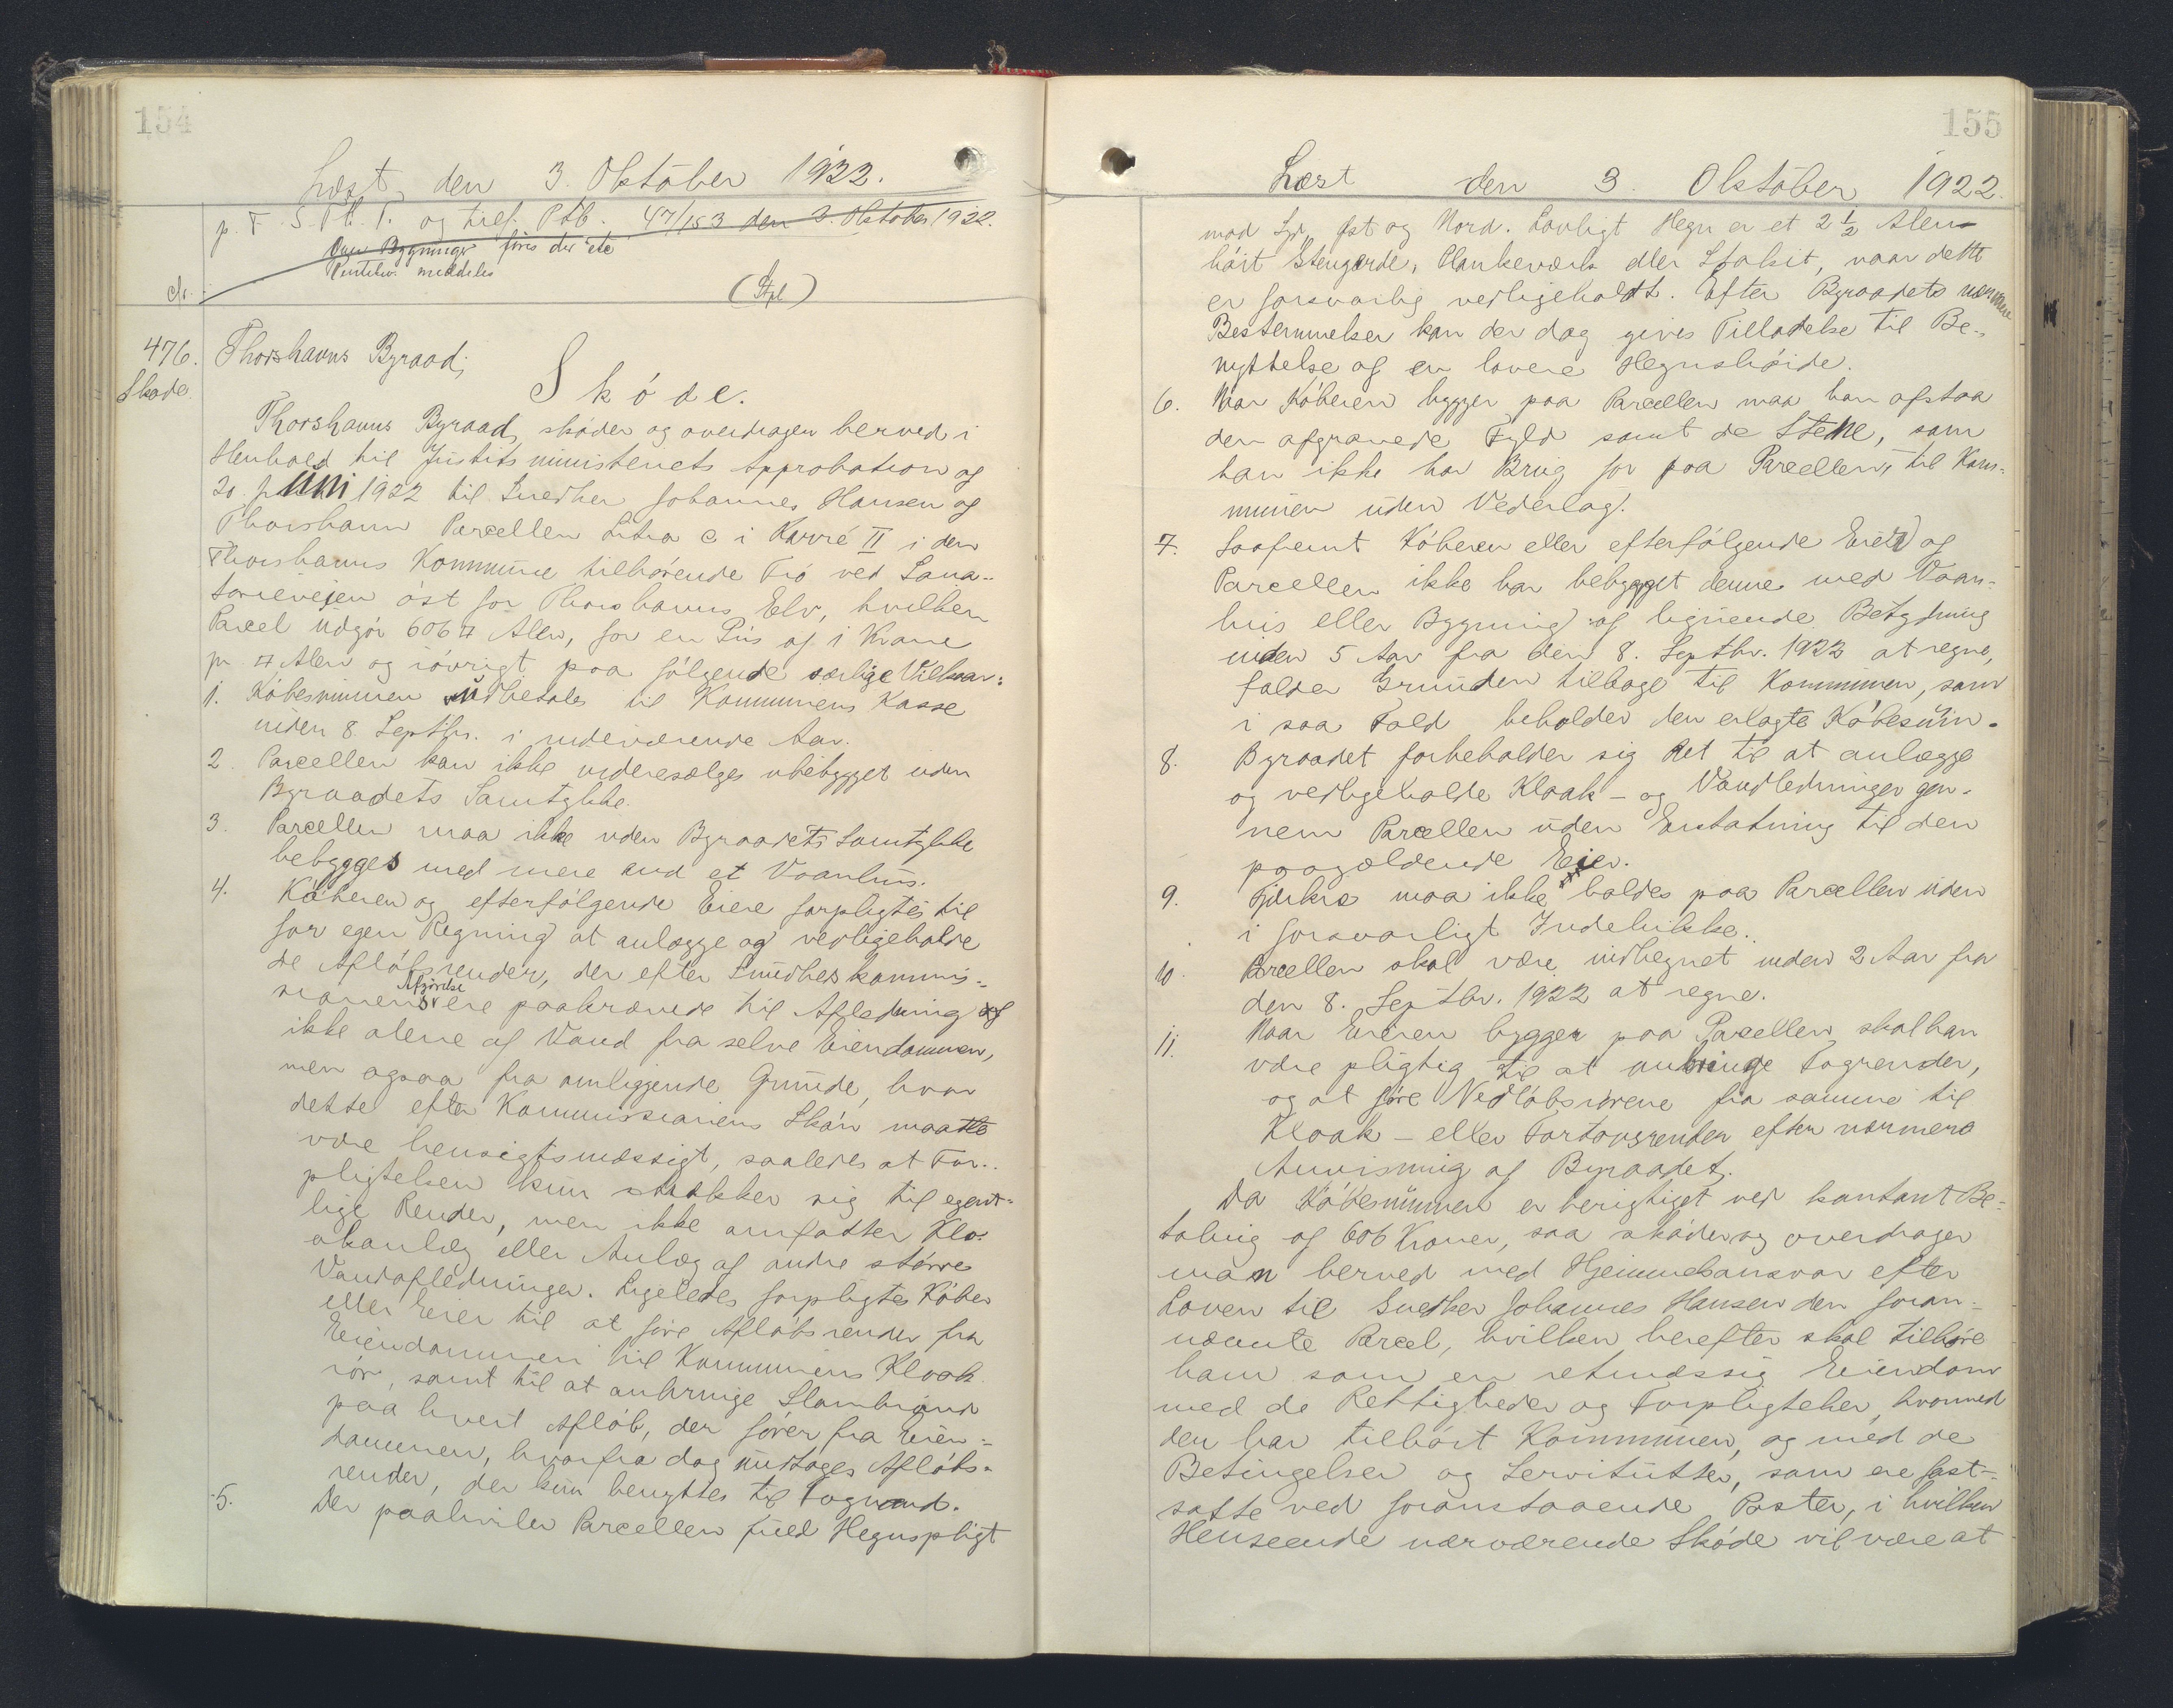 154
Læst, den 3. Oktober 1922.
p. T. S. Pk. P. og tilf. Ptb. 47/153 den 3. Oktober 1922.
Om Bygninger föres der ete
Pantebv. meddeles
c/r.
(Stpl)
476.
Skøde.
Thorshavns Byraad;
Sköde.
Thorshavns Byraad, sköder og overdrager herved i
Henhold til Justitsministeriets Approbation og
20. juni 1922 til Snedker Johannes Hansen og
Thorshavn Parcellen Litra c i Karré II i den
Thorshavns Kommune tilhörende Trö ved Sana-
torievejen öst for Thorshavns Elv, hvilken
Parcel udgör 606 □ Alen, for en Pris af 1 Krone
pr □ Alen og iövrigt paa fölgende særlige Vilkaar:
1. Köbesummen udbetales til Kommunens Kasse
inden 8. Septbr. i indeværende Aar.
2. Parcellen kan ikke videresælges ubebygget uden
Byraadets Samtykke.
3. Parcellen maa ikke uden Byraadets Samtykke
bebygges med mere end et Vaanhus.
4. Köberen og efterfölgende Eiere forpligtes til
for egen Regning at anlægge og vedligeholde
de Aflöbsrender, der efter Sundhedskommis-
sionens Afgörelse ere paakrævede til Afledning af
ikke alene af Vand fra selve Eiendommen,
men ogsaa fra omliggende Grunde, hvor
dette efter Kommissionens Skön maatte
være hensigtsmæssigt, saaledes at For-
pligtelsen kun strækker sig til egent-
lige Render, men ikke omfatter Klo-
akanlæg eller Anlæg af andre större
Vandafledninger. Ligeledes forpligtes Köber
eller Eier til at före Aflöbsrender fra
Eiendommen til Kommunens Kloak
rör, samt til at anbringe Slambrönd
paa hvert Aflöb, der förer fra Eien-
dommen, hvorfra dog undtages Aflöbs-
render, der kun benyttes til Tagvand.
5. Der paahviler Parcellen fuld Hegnspligt
155
Læst den 3. Oktober 1922.
mod Syd, Öst og Nord. Lovligt Hegn er et 2 1/2 Alen
höit Stengærde, Plankeværk eller Stakit, naar dette
er forsvarlig vedligeholdt. Efter Byraadets nærmere
Bestemmelser kan der dog gives Tilladelse til Be-
nyttelse af en lavere Hegnshöide.
6. Naar Köberen bygger paa Parcellen maa han afstaa
den afgravede Fyld samt de Stene, som
han ikke har Brug for paa Parcellen, til Kom-
munen uden Vederlag.
7. Saafremt Köberen eller efterfölgende Eier af
Parcellen ikke har bebygget denne med Vaan-
hus eller Bygning af lignende Betydning
inden 5 Aar fra den 8. Septbr. 1922 at regne,
falder Grunden tilbage til Kommunen, som
i saa Fald beholder den erlagte Köbesum.
8. Byraadet forbeholder sig Ret til at anlægge
og vedligeholde Kloak- og Vandledninger gen-
nem Parcellen uden Erstatning til den
paagældende Eier.
9. Fjerkræ maa ikke holdes paa Parcellen uden
i forsvarligt Indelukke.
10. Parcellen skal være indhegnet inden 2 Aar fra
den 8. Septbr. 1922 at regne.
11. Naar Eieren bygger paa Parcellen, skal han
være pligtig til at anbringe Tagrender,
og at före Nedlöbsrörene fra samme til
Kloak- eller Fortovsrender efter nærmere
Anvisning af Byraadet.
Da Köbesummen er berigtiget ved kontant Be-
taling af 606 Kroner, saa sköder og overdrager
man herved med Hjemmelsansvar efter
Loven til Snedker Johannes Hansen den foran-
nævnte Parcel, hvilken herefter skal tilhöre
ham som en retmæssig Eiendom
med de Rettigheder og Forpligtelser, hvormed
den har tilhört Kommunen, og med de
Betingelser og Servitutter, som ere fast-
satte ved foranstaaende Poster, i hvilken
Henseende nærværende Sköde vil være at